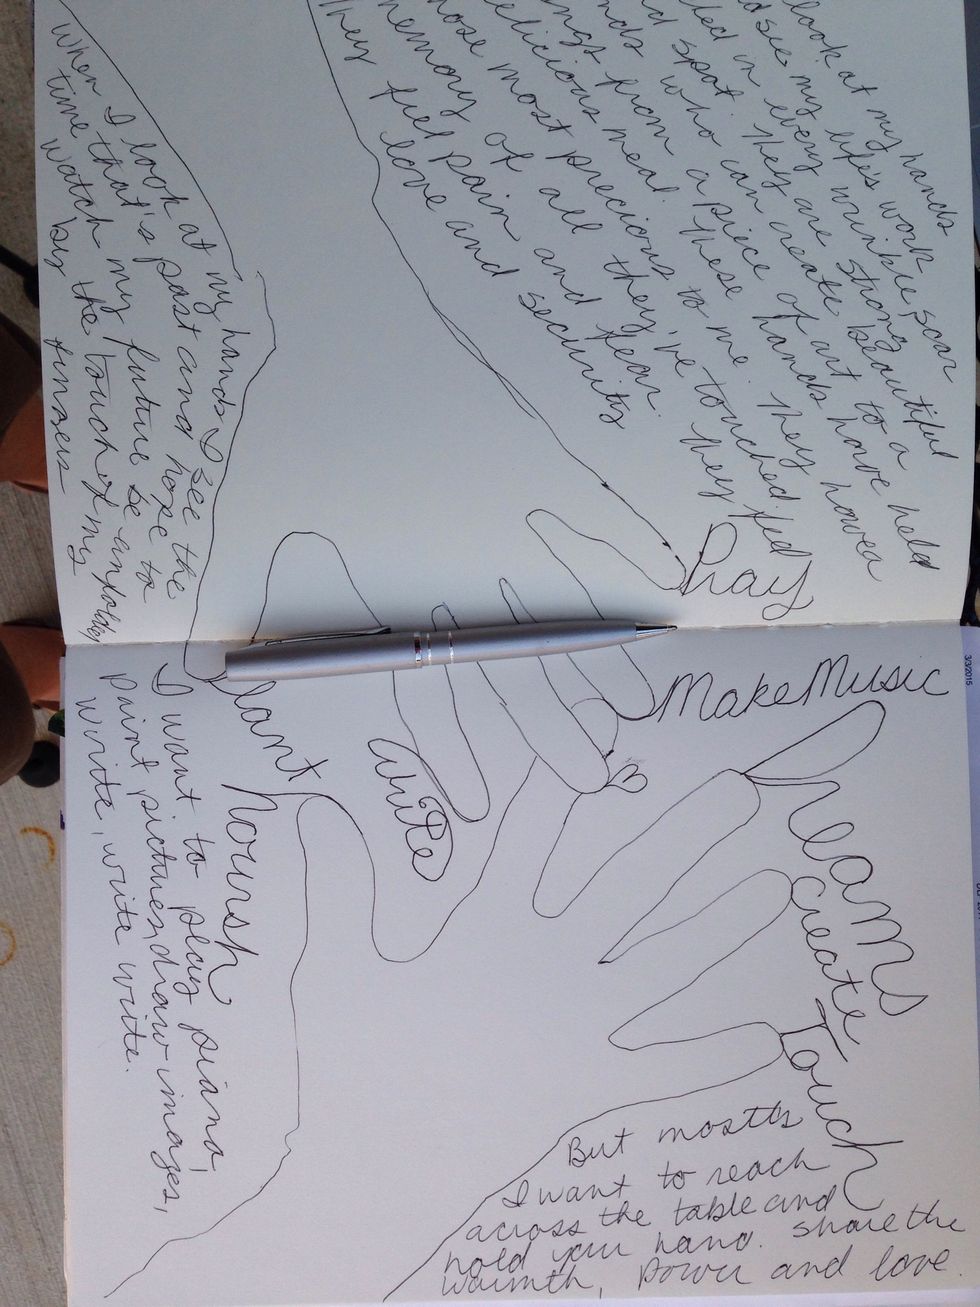 look at my hands
see my life's work
in every wrinkle, scar
spot. They are strong
who can create beautiful
from a piece of art to a
meal. These hands have held
most precious to me. They have a
memory of all they've touched. They feed
They feel pain and fear.
love and security
When I look at my hands I see the
time that's past and hope to
watch my future be
by the touch of my
fingers
Pray
Make Music
Dreams
Create
Touch
Write
Plant
Nourish
I want to play piano,
paint pictures, draw images,
write, write write.
But mostly
I want to reach
across the table and
hold your hand. Share the
warmth, power and love.
3/3/2015